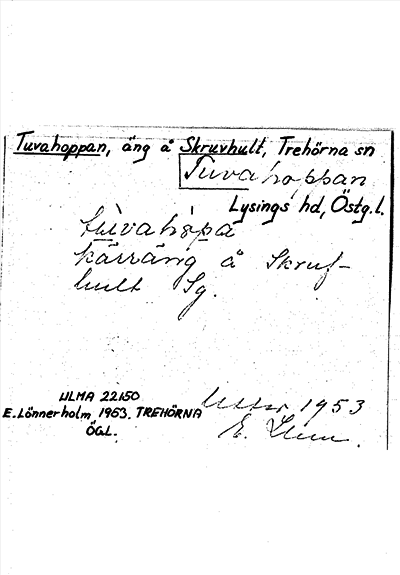 Tuvahoppan, äng å Skruvhult, Trehörna sn
Tuvahoppan
Lysings hd, Östg.l.
tùvahòpa
kärräng å Skruf-
hult Sg.
ULMA 22150
E. Lönnerholm 1953. TREHÖRNA
ÖGL.
1953
E.